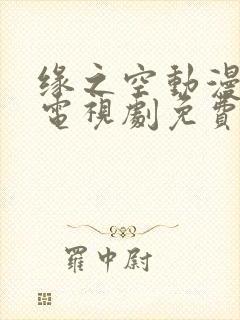 緣之空動漫
電視劇免費
羅中尉